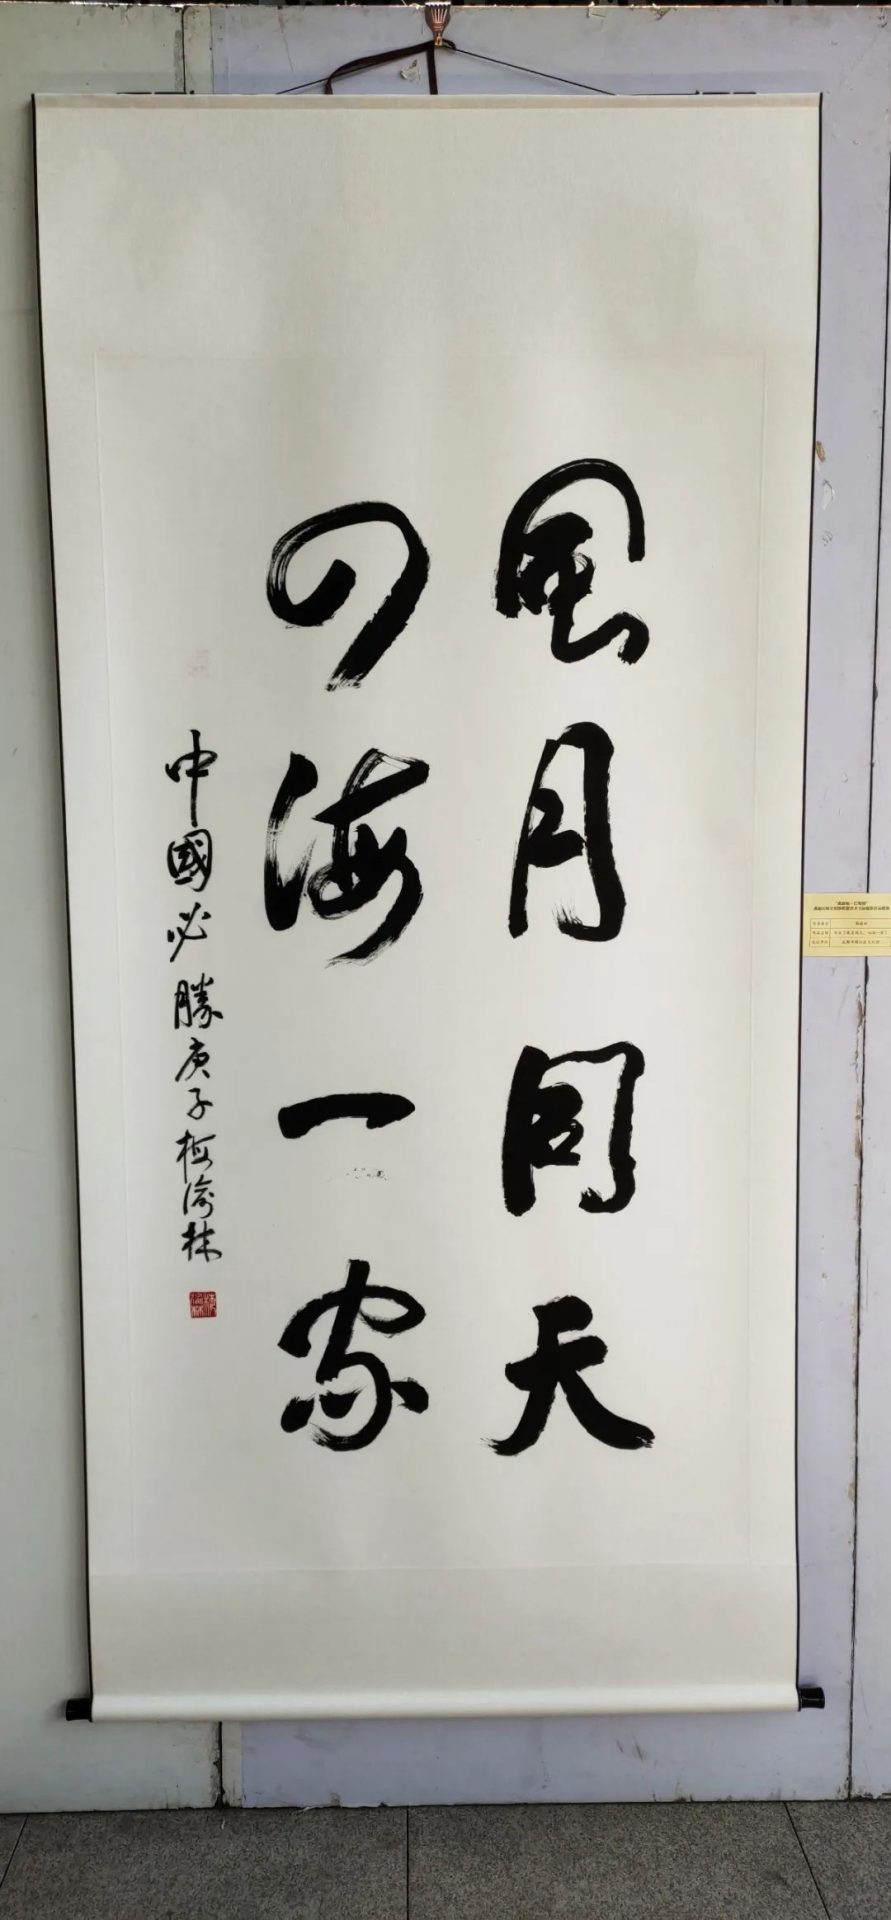 風月同天
四海一家
中國必勝庚子梅渝林